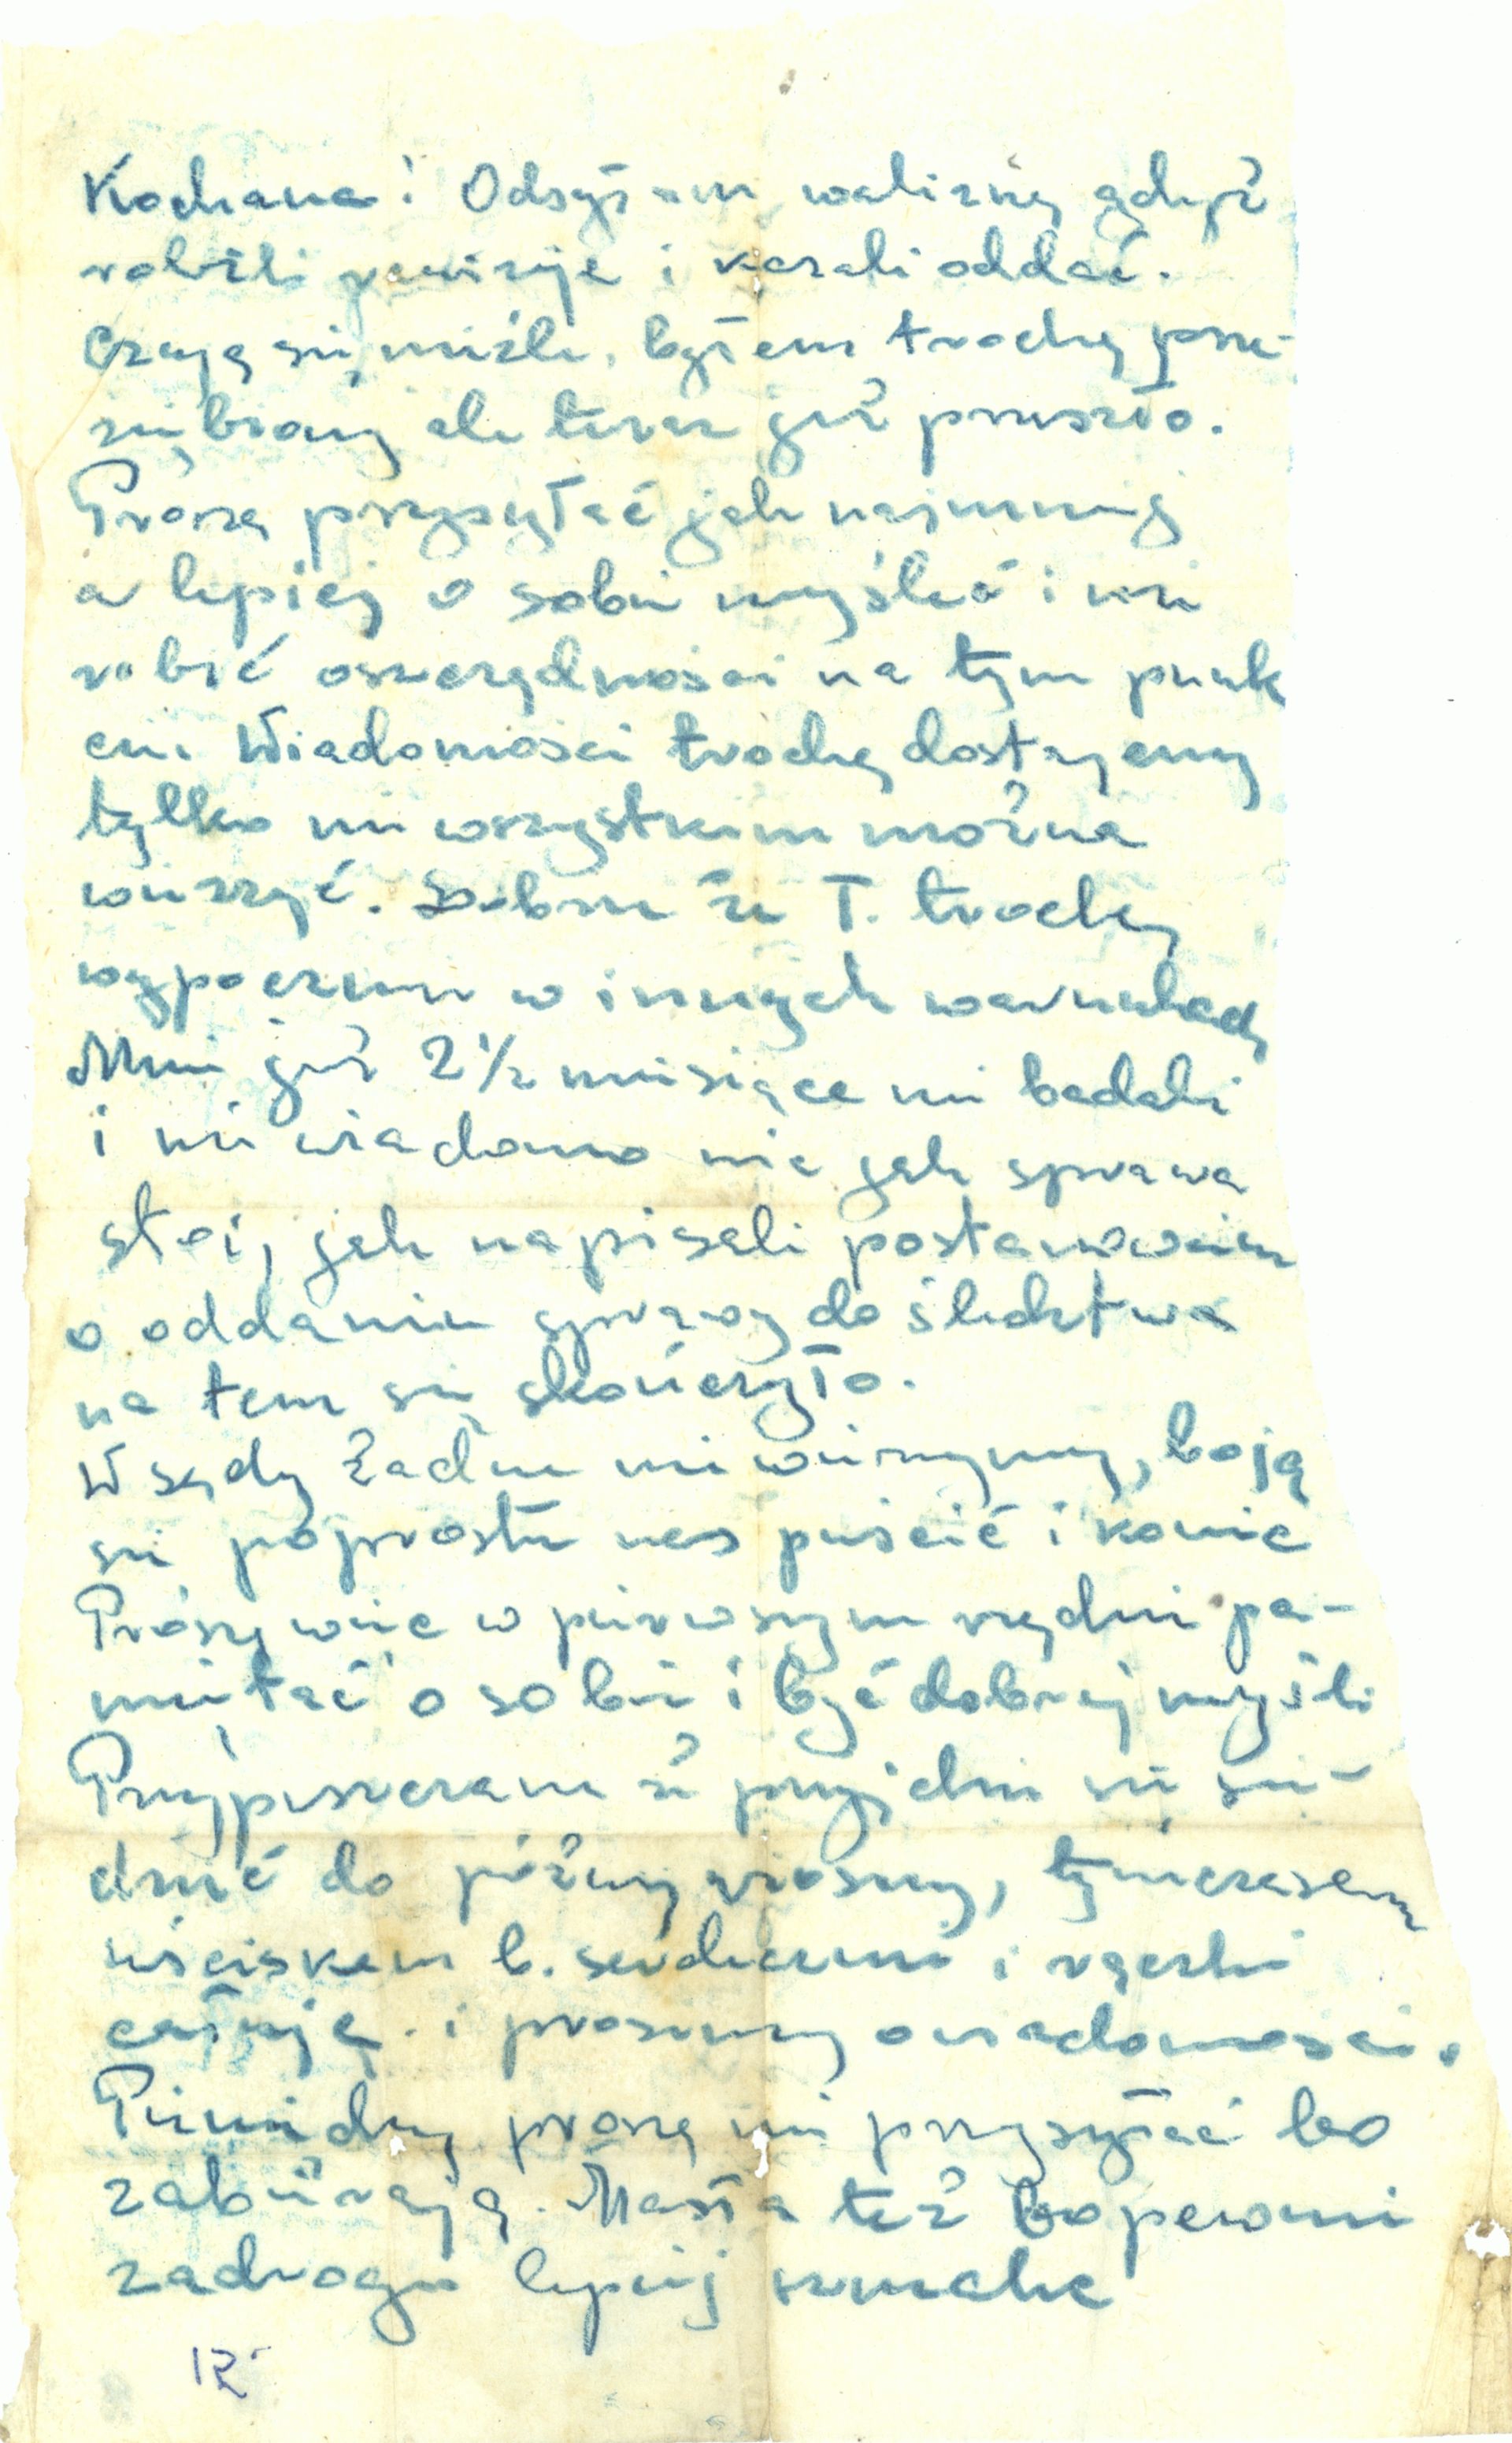 Kochana! Odsyłam walizkę gdyż
robili rewizje i kazali oddać.
Czuję się nieźle, byłem trochę prze-
ziębiony ale teraz już przeszło.
Proszę przysyłać jak najmniej
a lepiej o sobie myśleć i nie
robić oszczędności na tym punk
cie. Wiadomości trochę dostajemy
tylko nie wszystkiem można
wierzyć. Dobrze że T. trochę
wypocznie w innych warunkach
Mnie już 2½ miesiące nie badali
i nie wiadomo nic jak sprawa
stoi, jak napisali postanowienie
o oddaniu sprawy do śledztwa
na tem się skończyło.
W sądy żadne nie wierzymy, boją
się poprostu nas puścić i koniec
Proszę więc w pierwszym rzędzie pa-
miętać o sobie i być dobrej myśli
Przypuszczam że przyjdzie się sie-
dzieć do późnej wiosny, tymczasem
uściskam b. serdecznie i rączki
całuję. i prosimy o wiadomości.
Pieniędzy proszę nie przysyłać bo
zabierają. Masła też bo pewnie
zadrogo lepiej szmalec
12